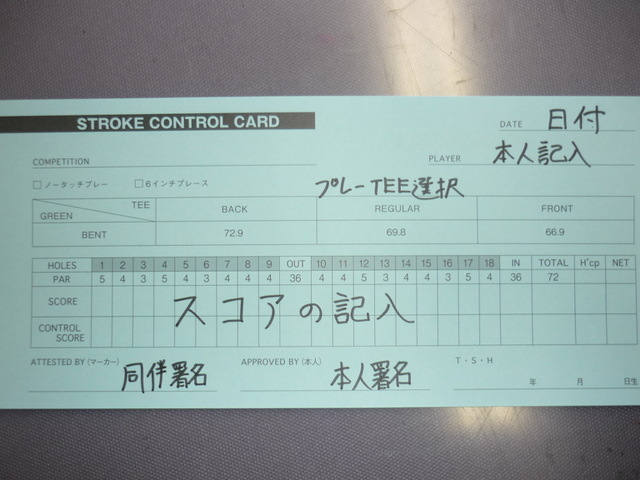 STROKE CONTROL CARD
DATE 日付
COMPETITION
PLAYER 本人記入
□ノータッチプレー □6インチプレース
プレーTEE選択
TEE BACK REGULAR FRONT
GREEN
BENT 72.9 69.8 66.9
HOLES 1 2 3 4 5 6 7 8 9 OUT 10 11 12 13 14 15 16 17 18 IN TOTAL H'cp NET
PAR 5 4 3 5 4 3 4 4 4 36 4 4 5 3 4 4 3 5 4 36 72
SCORE
スコアの記入
CONTROL
SCORE
ATTESTED BY (マーカー) 同伴署名
APPROVED BY (本人) 本人署名
T・S・H
年 月 日生